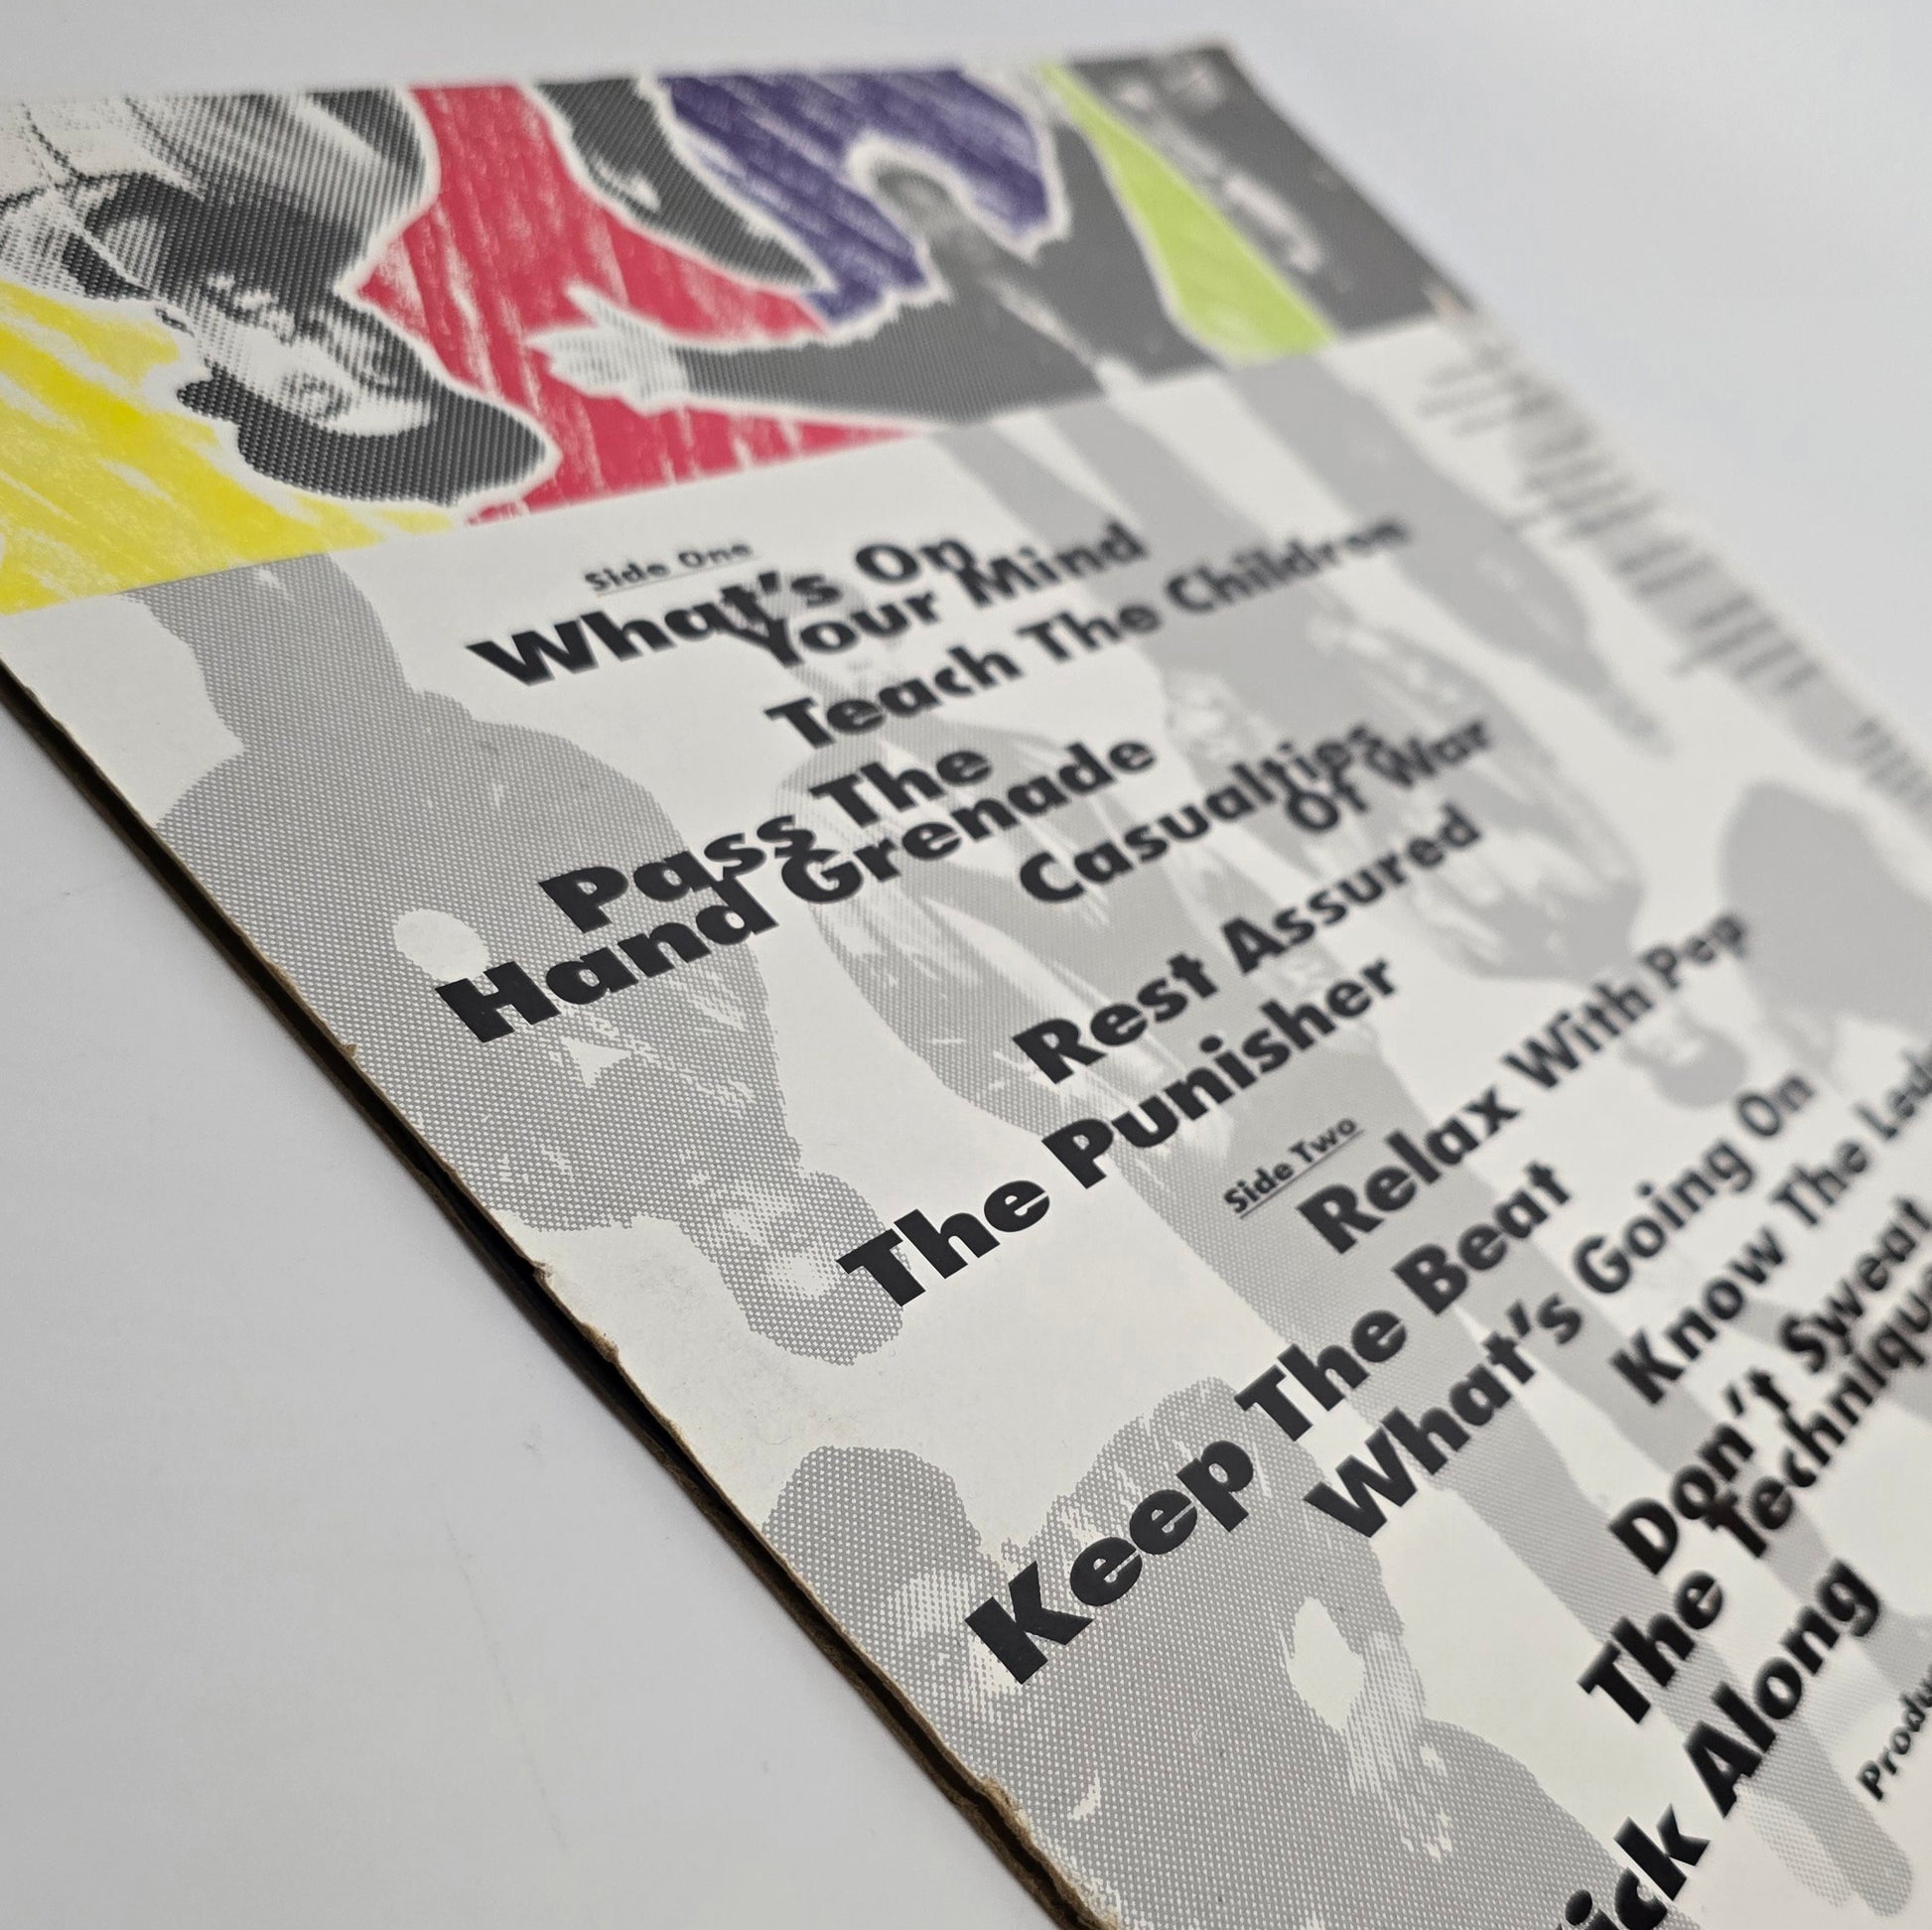 Side One
What's On
Your Mind
Teach The Children
Pass The
Hand Grenade
Casualties
Of War
Rest Assured
The Punisher
Side Two
Relax With Pep
Keep The Beat
What's Going On
Know The
Don't Sweat
The
Along